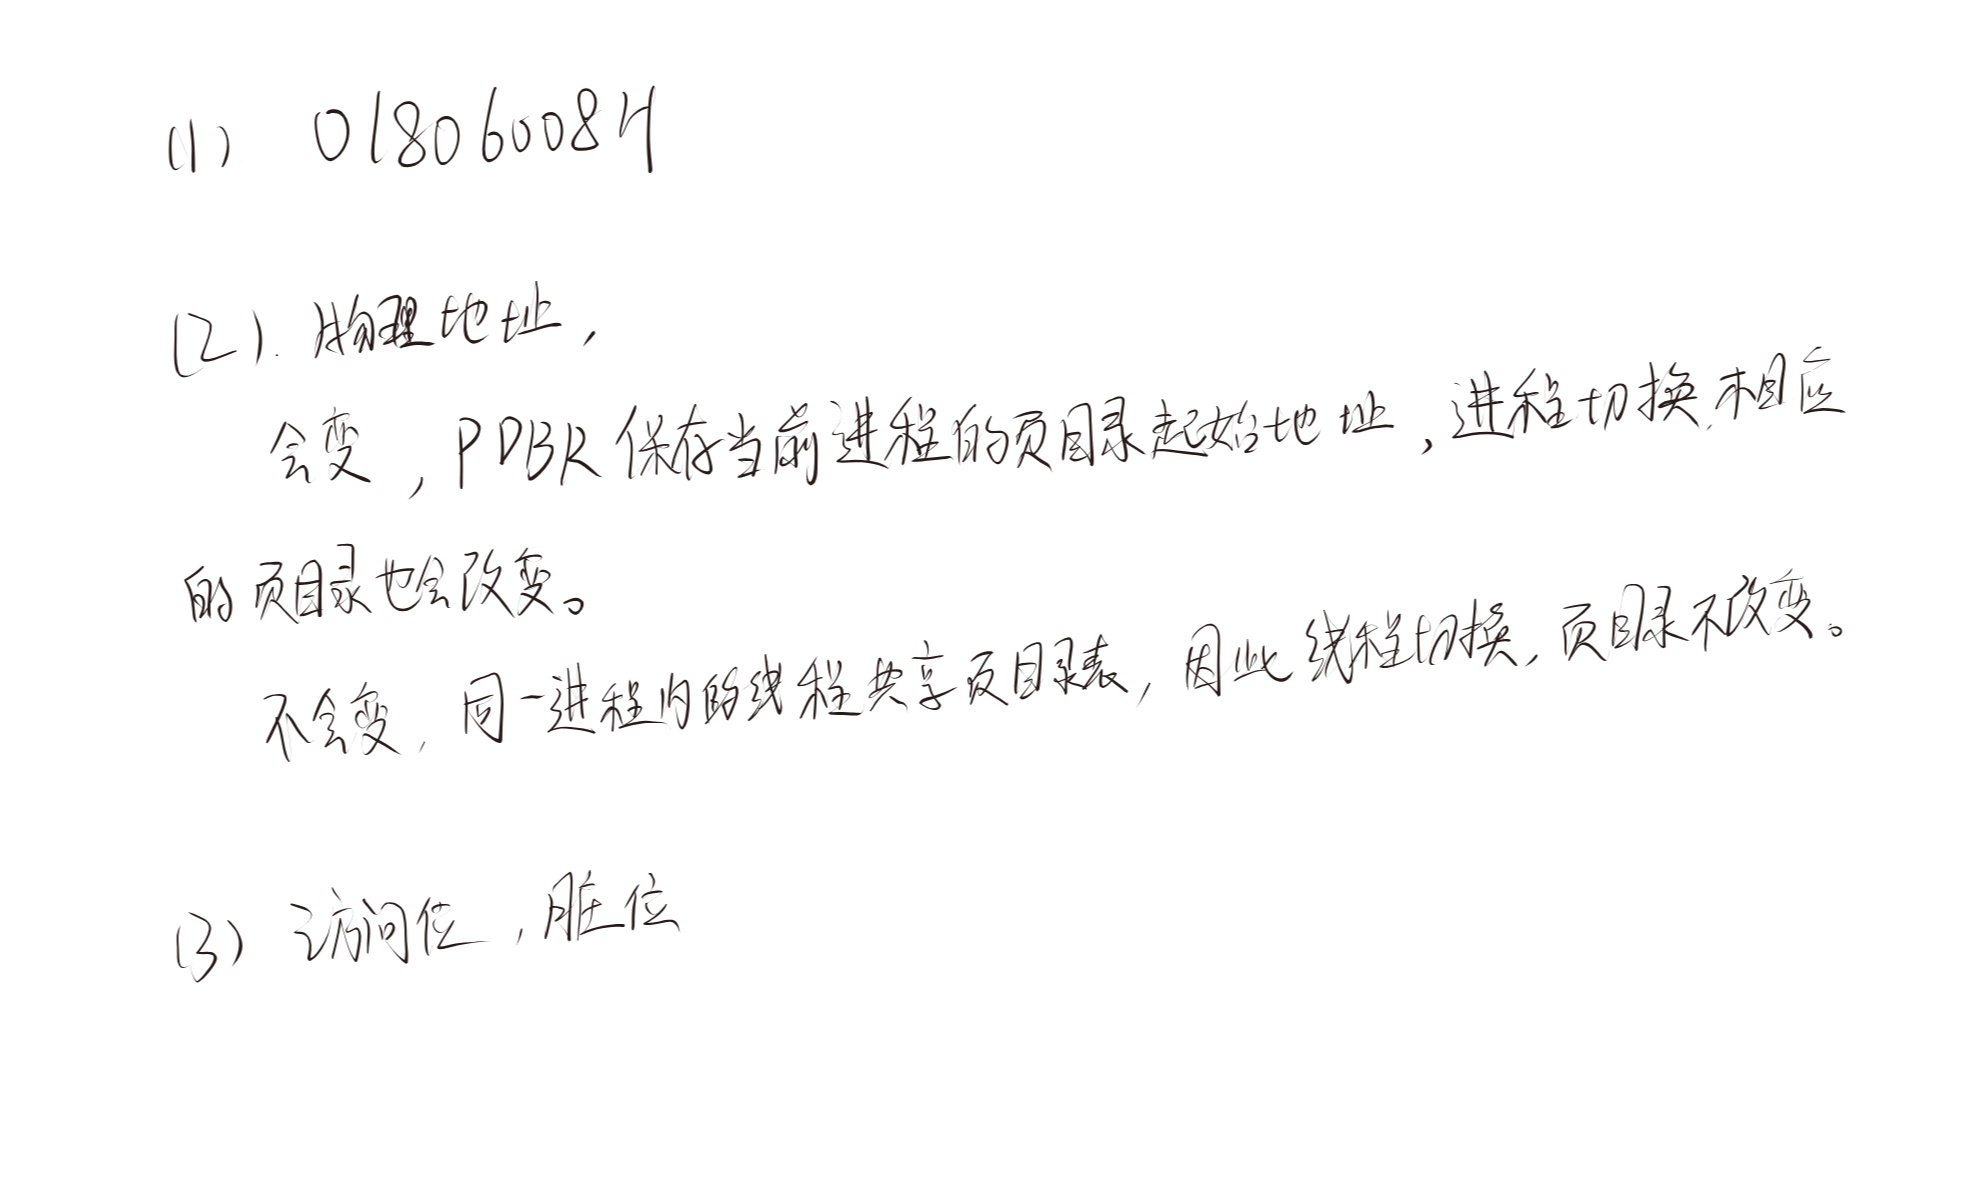 (1) 01806008H
(2). 物理地址,
会变, PDBR保存当前进程的页目录起始地址, 进程切换, 相应
的页目录也会改变。
不会变, 同一进程内的线程共享页目录表, 因此线程切换, 页目录不改变。
(3) 访问位, 脏位